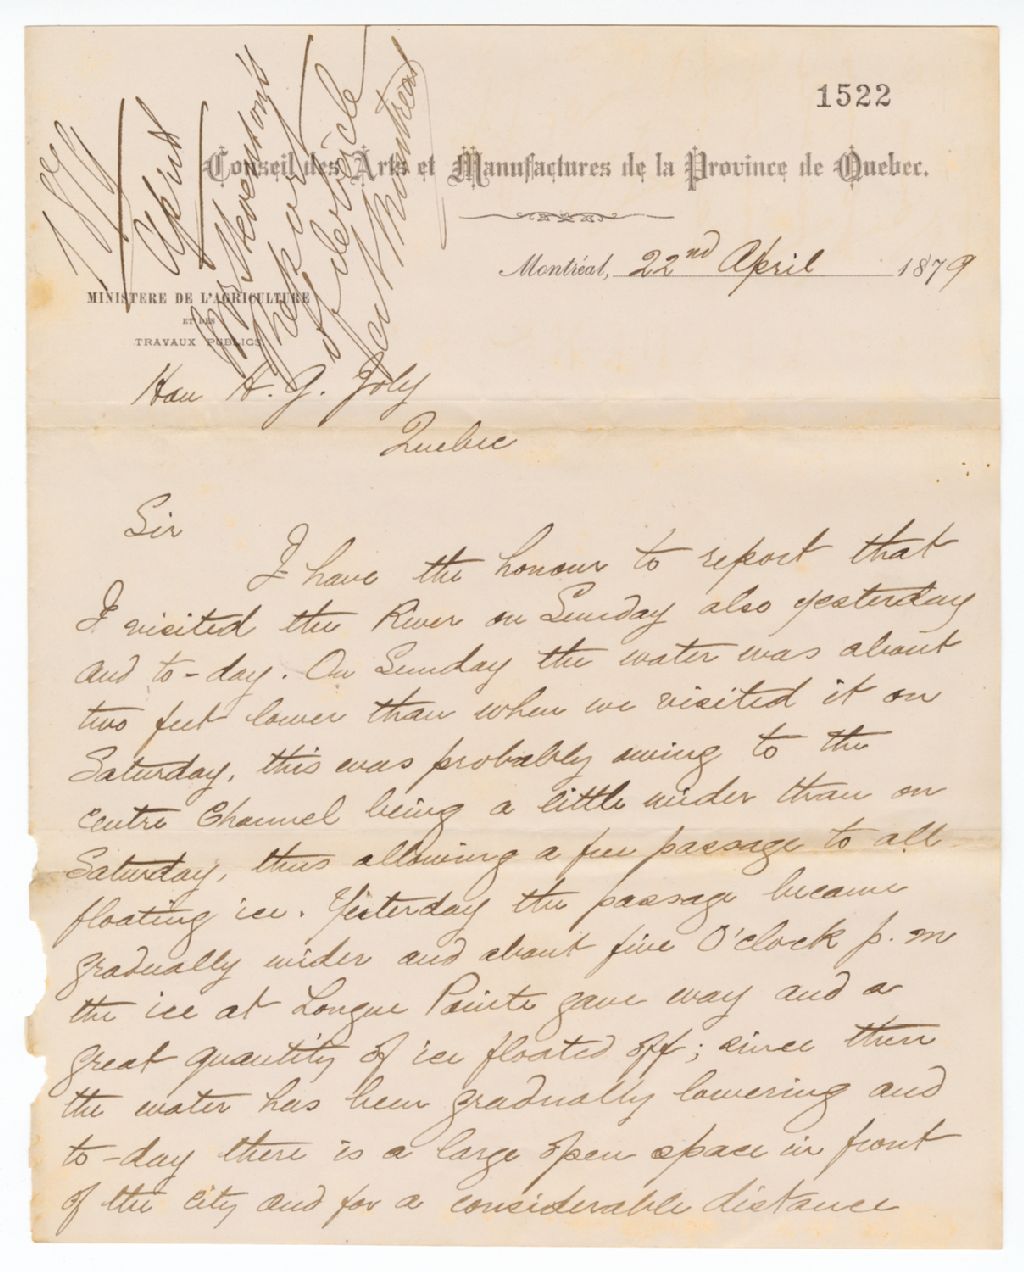 1522
1879
April
Mr Stevenson's
Report
of ice
at Montreal
Conseil des Arts et Manufactures de la Province de Quebec.
Montréal, 22nd April 1879
MINISTERE DE L'AGRICULTURE
ET DES
TRAVAUX PUBLICS.
Hon H. G. Joly
Quebec
Sir
I have the honour to report that
I visited the River on Sunday also yesterday
and to-day. On Sunday the water was about
two feet lower than when we visited it on
Saturday, this was probably owing to the
centre Channel being a little wider than on
Saturday, thus allowing a free passage to all
floating ice. Yesterday the passage became
gradually wider and about five O'clock p.m
the ice at Longue Pointe gave way and a
great quantity of ice floated off; since then
the water has been gradually lowering and
to-day there is a large open space in front
of the city and for a considerable distance